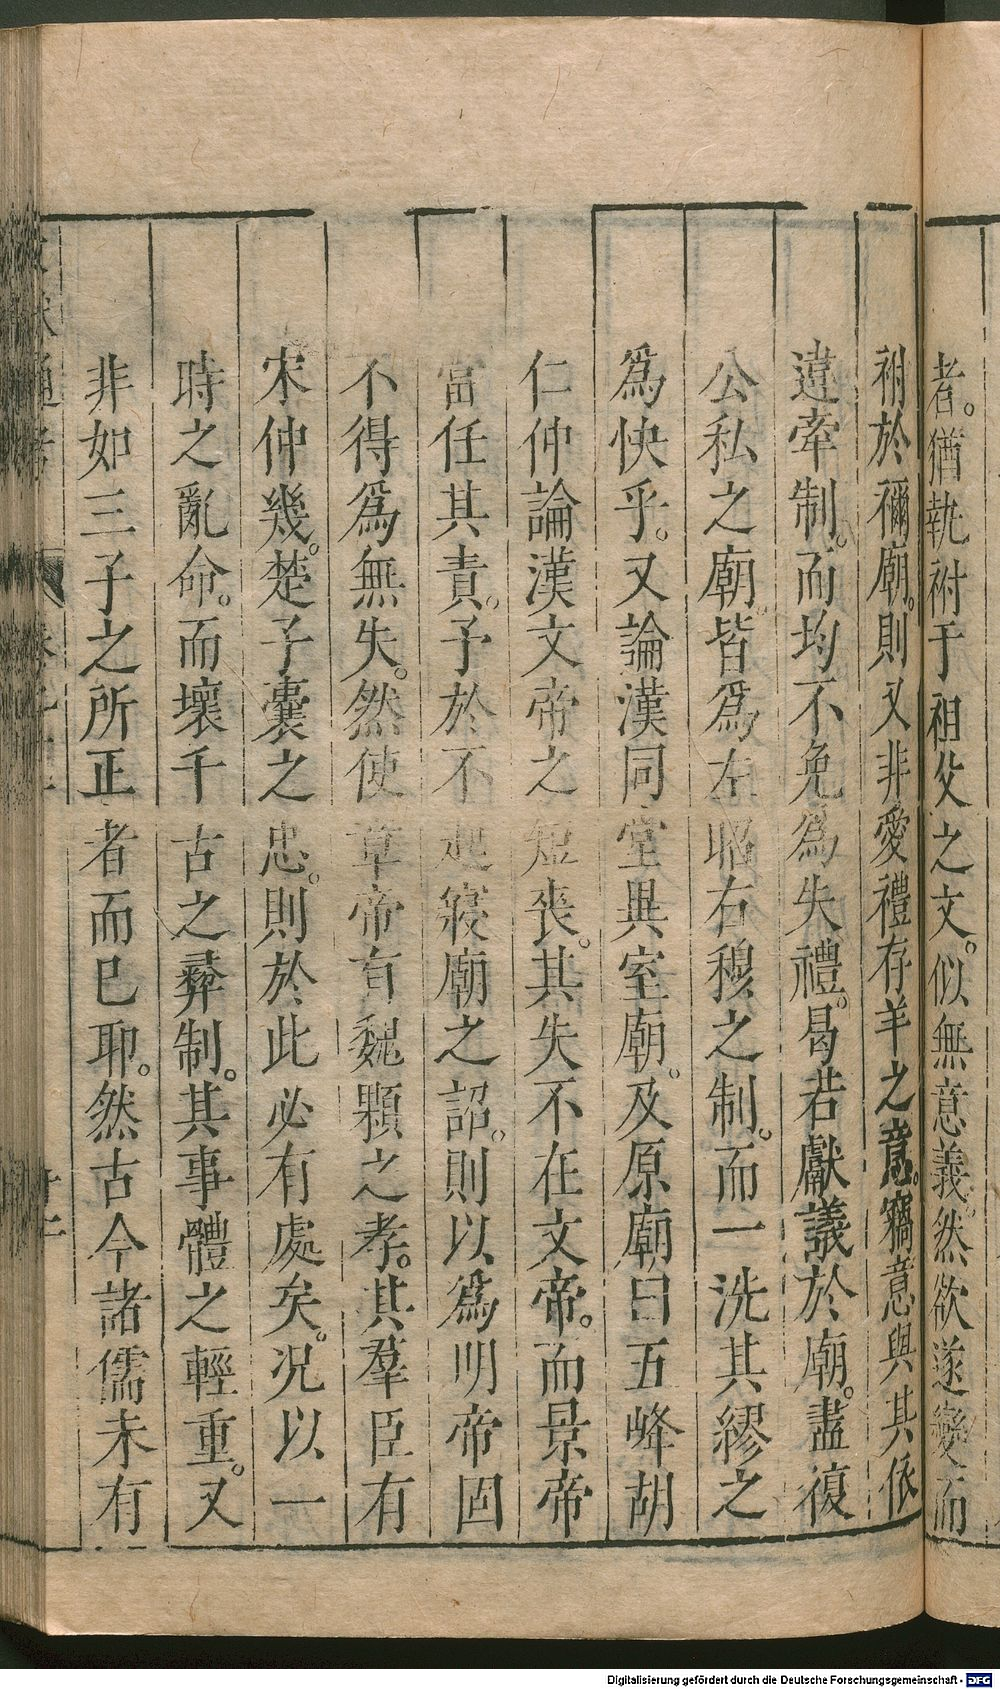 者。猶執祔于祖父之文。似無意義。然欲遂變而
祔於禰廟。則又非愛禮存羊之意。竊意與其依
違牽制。而均不免爲失禮。曷若獻議於廟。盡復
公私之廟。皆爲左昭右穆之制。而一洗其繆之
爲快乎。又論漢同堂異室廟。及原廟曰五峰胡
仁仲論漢文帝之短喪。其失不在文帝。而景帝
當任其責。予於不起寢廟之詔。則以爲明帝固
不得爲無失。然使章帝有魏顆之孝。其羣臣有
宋仲幾。楚子囊之忠。則於此必有處矣。况以一
時之亂命。而壞千古之彛制。其事體之輕重。又
非如三子之所正者而已耶。然古今諸儒未有
Digitalisierung gefördert durch die Deutsche Forschungsgemeinschaft - DFG